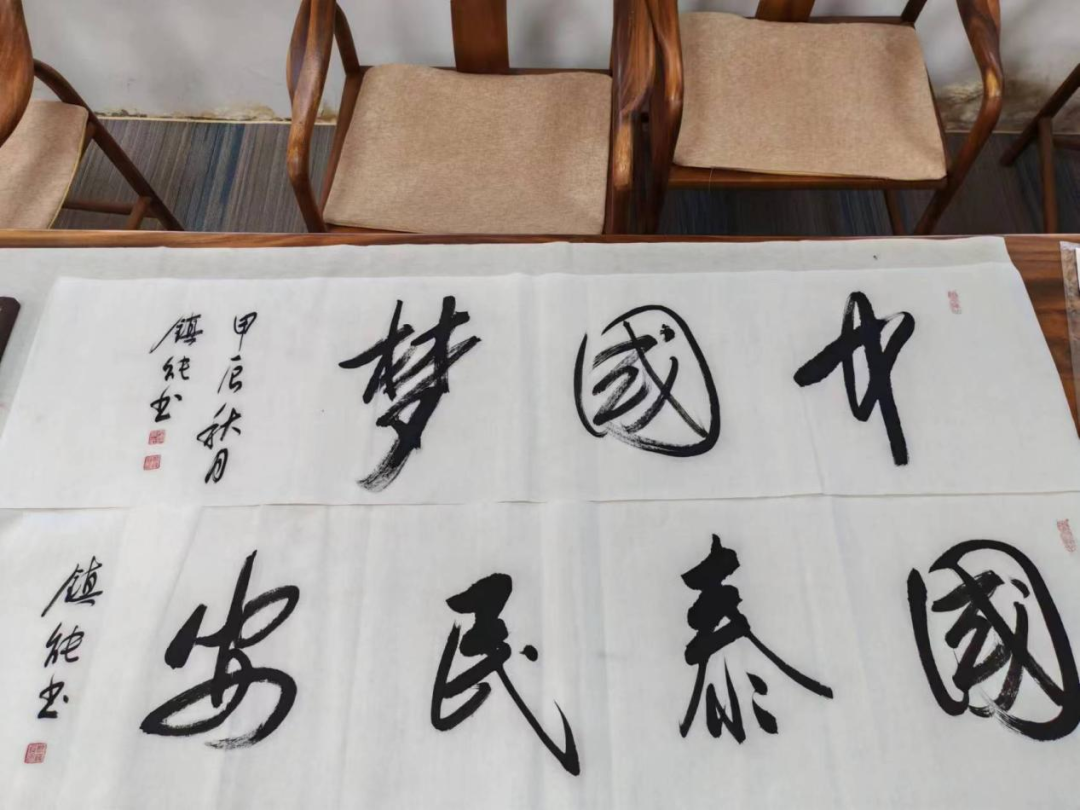 中國夢
甲辰秋月
鎮能书
國泰民安
鎮能书